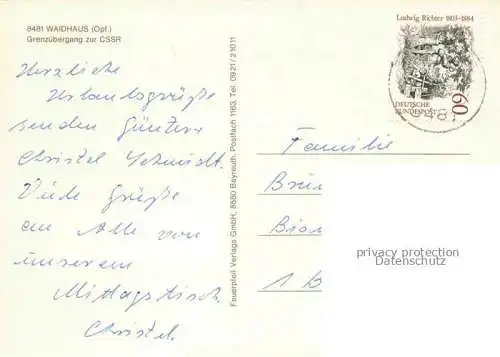 8481 WAIDHAUS (Opf.)
Grenzübergang zur ČSSR
Herzliche
Urlaubsgrüße
senden Günter
Christel Schmidt.
Viele Grüße
an Alle von
unserem
Mittagstisch
Christel.
Feuerpfeil Verlags GmbH, 8580 Bayreuth, Postfach 1163, Tel. 0921/21011
Ludwig Richter 1803-1884
DEUTSCHE
BUNDESPOST
60
8481
Familie
Brün
1 B
privacy protection
Datenschutz